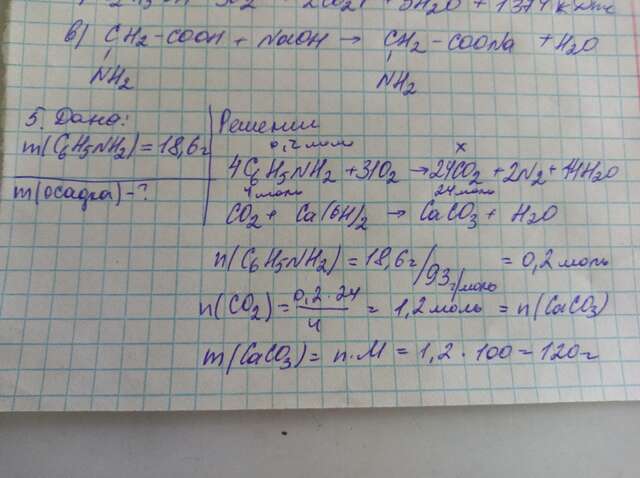 2CO₂ + 5H₂O + 1374 кДж
в) CH₂-COOH + NaOH → CH₂-COONa + H₂O
NH₂ NH₂
5. Дано:
m(C₆H₅NH₂) = 18,6г
m(осадка) - ?
Решении
0,2 моль x
4C₆H₅NH₂ + 31O₂ → 24CO₂ + 2N₂ + 14H₂O
4 моль 24 моль
CO₂ + Ca(OH)₂ → CaCO₃ + H₂O
n(C₆H₅NH₂) = 18,6г/93г/моль = 0,2 моль
n(CO₂) = 0,2·24/4 = 1,2 моль = n(CaCO₃)
m(CaCO₃) = n·M = 1,2·100 = 120г